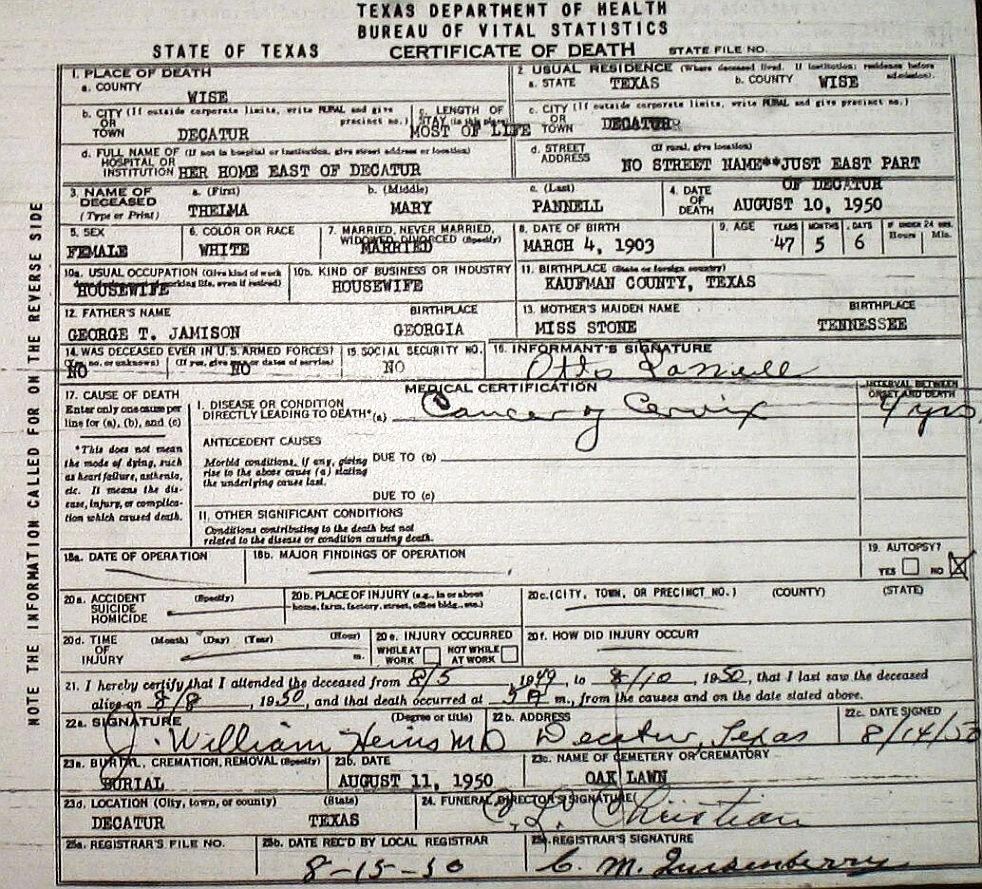 TEXAS DEPARTMENT OF HEALTH
BUREAU OF VITAL STATISTICS
STATE OF TEXAS CERTIFICATE OF DEATH STATE FILE NO.
NOTE THE INFORMATION CALLED FOR ON THE REVERSE SIDE
1. PLACE OF DEATH
a. COUNTY
WISE
2. USUAL RESIDENCE (Where deceased lived. If institution: residence before admission).
a. STATE TEXAS b. COUNTY WISE
b. CITY (If outside corporate limits, write RURAL and give precinct no.)
OR
TOWN DECATUR
c. LENGTH OF
STAY (in this place)
MOST OF LIFE
c. CITY (If outside corporate limits, write RURAL and give precinct no.)
OR
TOWN DECATUR
d. FULL NAME OF (If not in hospital or institution, give street address or location)
HOSPITAL OR
INSTITUTION HER HOME EAST OF DECATUR
d. STREET (If rural, give location)
ADDRESS
NO STREET NAME**JUST EAST PART
OF DECATUR
3. NAME OF DECEASED
(Type or Print)
a. (First) b. (Middle) c. (Last)
THELMA MARY PANNELL
4. DATE
OF
DEATH AUGUST 10, 1950
5. SEX
FEMALE
6. COLOR OR RACE
WHITE
7. MARRIED, NEVER MARRIED,
WIDOWED, DIVORCED (Specify)
MARRIED
8. DATE OF BIRTH
MARCH 4, 1903
9. AGE YEARS MONTHS DAYS IF UNDER 24 HRS. Hours Min.
47 5 6
10a. USUAL OCCUPATION (Give kind of work
done during most of working life, even if retired)
HOUSEWIFE
10b. KIND OF BUSINESS OR INDUSTRY
HOUSEWIFE
11. BIRTHPLACE (State or foreign country)
KAUFMAN COUNTY, TEXAS
12. FATHER'S NAME BIRTHPLACE
GEORGE T. JAMISON GEORGIA
13. MOTHER'S MAIDEN NAME BIRTHPLACE
MISS STONE TENNESSEE
14. WAS DECEASED EVER IN U.S. ARMED FORCES?
(Yes, no, or unknown) (If yes, give war or dates of service)
NO NO
15. SOCIAL SECURITY NO.
NO
16. INFORMANT'S SIGNATURE
Otto Pannell
MEDICAL CERTIFICATION
17. CAUSE OF DEATH
Enter only one cause per
line for (a), (b), and (c)
*This does not mean
the mode of dying, such
as heart failure, asthenia,
etc. It means the dis-
ease, injury, or complica-
tion which caused death.
I. DISEASE OR CONDITION
DIRECTLY LEADING TO DEATH* (a) Cancer of Cervix
INTERVAL BETWEEN
ONSET AND DEATH
4 yrs.
ANTECEDENT CAUSES
Morbid conditions, if any, giving
rise to the above cause (a) stating
the underlying cause last.
DUE TO (b)
DUE TO (c)
II. OTHER SIGNIFICANT CONDITIONS
Conditions contributing to the death but not
related to the disease or condition causing death.
18a. DATE OF OPERATION
18b. MAJOR FINDINGS OF OPERATION
19. AUTOPSY?
YES NO X
20a. ACCIDENT (Specify)
SUICIDE
HOMICIDE
20b. PLACE OF INJURY (e.g., in or about
home, farm, factory, street, office bldg., etc.)
20c. (CITY, TOWN, OR PRECINCT NO.) (COUNTY) (STATE)
20d. TIME (Month) (Day) (Year) (Hour)
OF
INJURY m.
20e. INJURY OCCURRED
WHILE AT WORK NOT WHILE AT WORK
20f. HOW DID INJURY OCCUR?
21. I hereby certify that I attended the deceased from 8/5, 1949, to 8/10, 1950, that I last saw the deceased
alive on 8/8, 1950, and that death occurred at m., from the causes and on the date stated above.
22a. SIGNATURE (Degree or title)
J. William Heins MD
22b. ADDRESS
Decatur, Texas
22c. DATE SIGNED
8/14/50
23a. BURIAL, CREMATION, REMOVAL (Specify)
BURIAL
23b. DATE
AUGUST 11, 1950
23c. NAME OF CEMETERY OR CREMATORY
OAK LAWN
23d. LOCATION (City, town, or county) (State)
DECATUR TEXAS
24. FUNERAL DIRECTOR'S SIGNATURE
C. L. Christian
25a. REGISTRAR'S FILE NO.
25b. DATE REC'D BY LOCAL REGISTRAR
8-15-50
25c. REGISTRAR'S SIGNATURE
C. M. Quisenberry